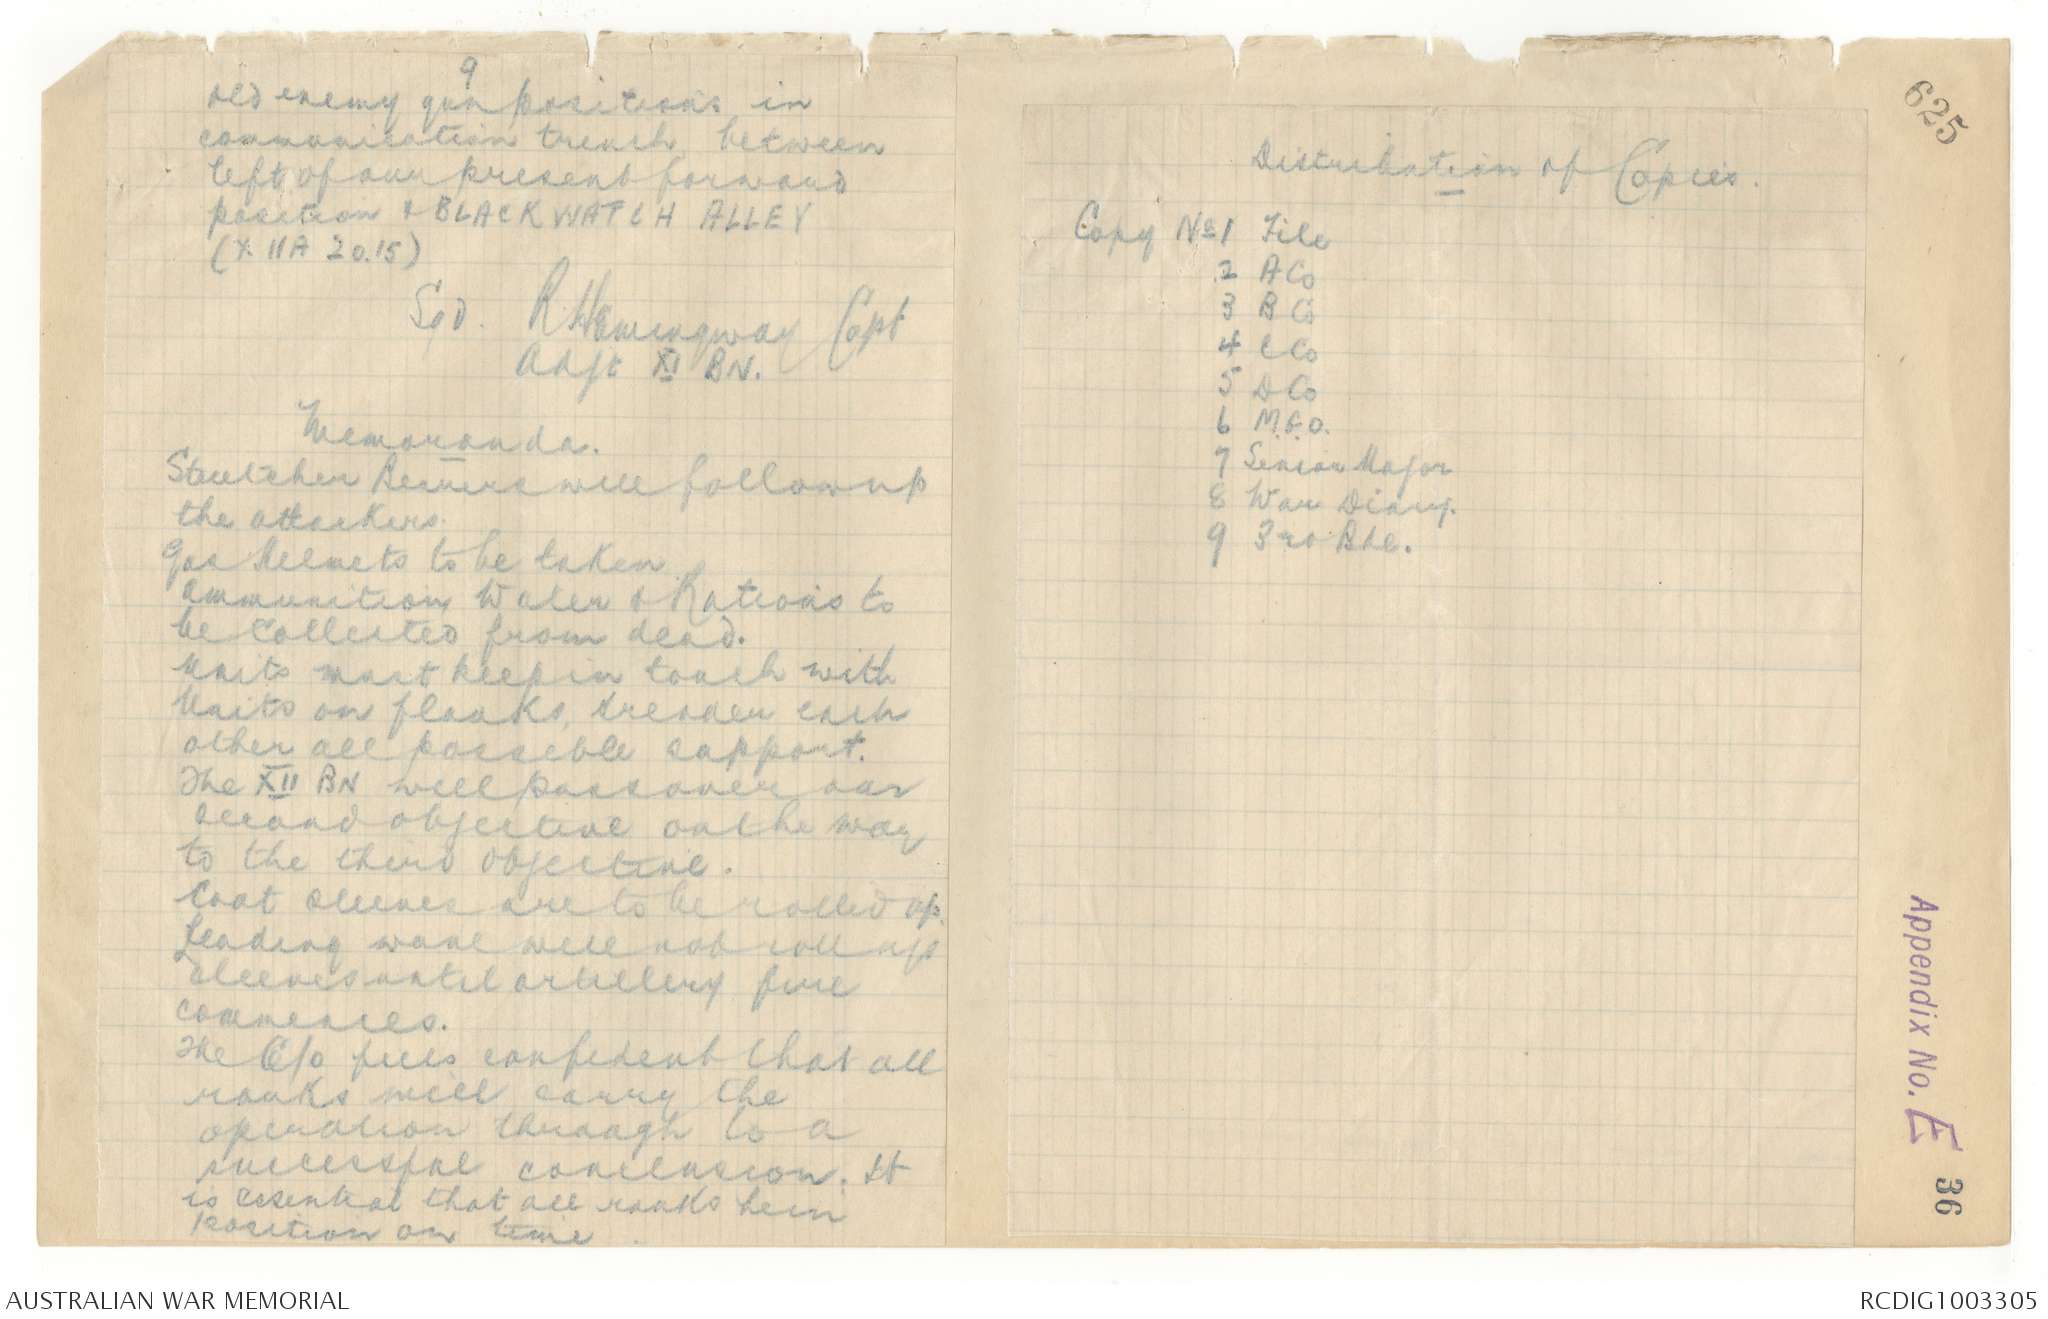 9
old enemy gun positions in
communication trench between
left of our present forward
position & BLACK WATCH ALLEY
(X 11A 20.15)
Sgd. R. Hemingway Capt
Adjt XI BN.
Memoranda.
Stretcher Bearers will follow up
the attackers.
Gas Helmets to be taken.
Ammunition Water & Rations to
be collected from dead.
Units must keep in touch with
Units on flanks, & render each
other all possible support.
The XII BN will pass over our
second objective on the way
to the third objective.
Coat sleeves are to be rolled up.
Leading wave will not roll up
sleeves until artillery fire
commences.
The C/O feels confident that all
ranks will carry the
operation through to a
successful conclusion. It
is essential that all ranks be in
position on time.
Distribution of Copies.
Copy No 1 File
2 A Co
3 B Co
4 C Co
5 D Co
6 M.G.O.
7 Senior Major
8 War Diary.
9 3rd Bde.
625
Appendix No. E
36
AUSTRALIAN WAR MEMORIAL
RCDIG1003305